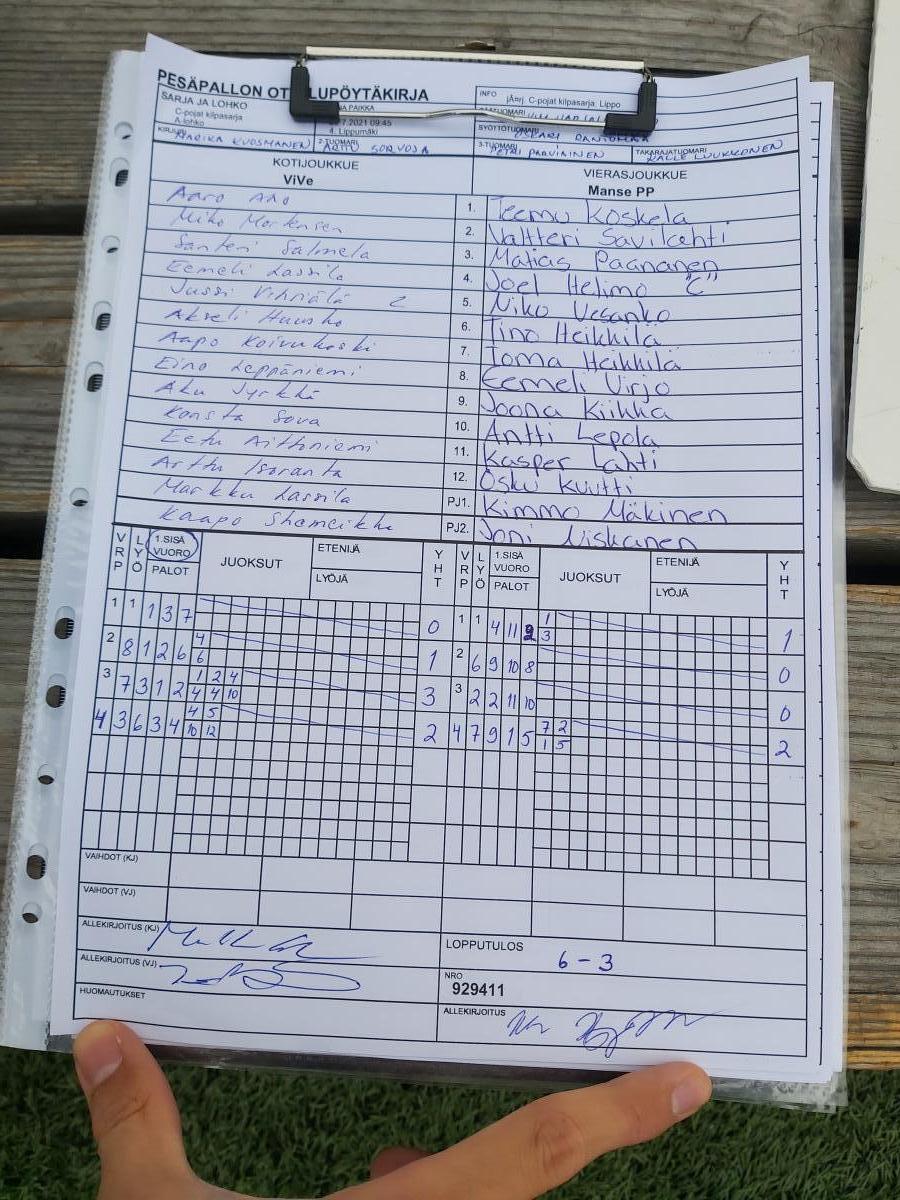 PESÄPALLON OT LUPÖYTÄKIRJA
SARJA JA LOHKO
C-pojat kilpasarja
A-lohko
PAIKKA
7.2021 09:45
4. Lippumäki
INFO jÄnrj. C-pojat kilpasarja: Lippo
SYÖTTÖTUOMARI OSKARI
KIRJURI MARIKA KUOSMANEN
2-TUOMARI ARTTU SORVOJA
3-TUOMARI PETRI PARVIAINEN
TAKARAJATUOMARI KALLE LUUKKONEN
KOTIJOUKKUE VIERASJOUKKUE
ViVe Manse PP
Aaro Aho 1. Teemu Koskela
Miko Mortensen 2. Valtteri Savilahti
Santeri Salmela 3. Matias Paananen
Eemeli Lassila 4. Joel Helimo "C"
Jussi Vihriälä C 5. Niko Vesanko
Akseli Huusko 6. Tino Heikkilä
Aapo Koivukoski 7. Toma Heikkilä
Eino Leppäniemi 8. Eemeli Virjo
Aku Jyrkkä 9. Joona Kiikka
Konsta Sova 10. Antti Lepola
Eetu Aittoniemi 11. Kasper Lahti
Arttu Isoranta 12. Osku Kuutti
Markku Lassila PJ1. Kimmo Mäkinen
Kaapo Shemeikka PJ2. Joni Niskanen
VRP LYÖ 1.SISÄ VUORO PALOT JUOKSUT ETENIJÄ LYÖJÄ YHT VRP LYÖ 1.SISÄ VUORO PALOT JUOKSUT ETENIJÄ LYÖJÄ YHT
1 1 1 3 7 0 1 1 4 11 2 1 3 1
2 8 1 2 6 4 6 1 2 6 9 10 8 0
3 7 3 1 2 1 2 4 4 4 10 3 3 2 2 11 10 0
4 3 6 3 4 4 5 10 12 2 4 7 9 1 5 7 2 1 5 2
VAIHDOT (KJ)
VAIHDOT (VJ)
ALLEKIRJOITUS (KJ)
ALLEKIRJOITUS (VJ)
HUOMAUTUKSET
LOPPUTULOS
6 - 3
NRO
929411
ALLEKIRJOITUS